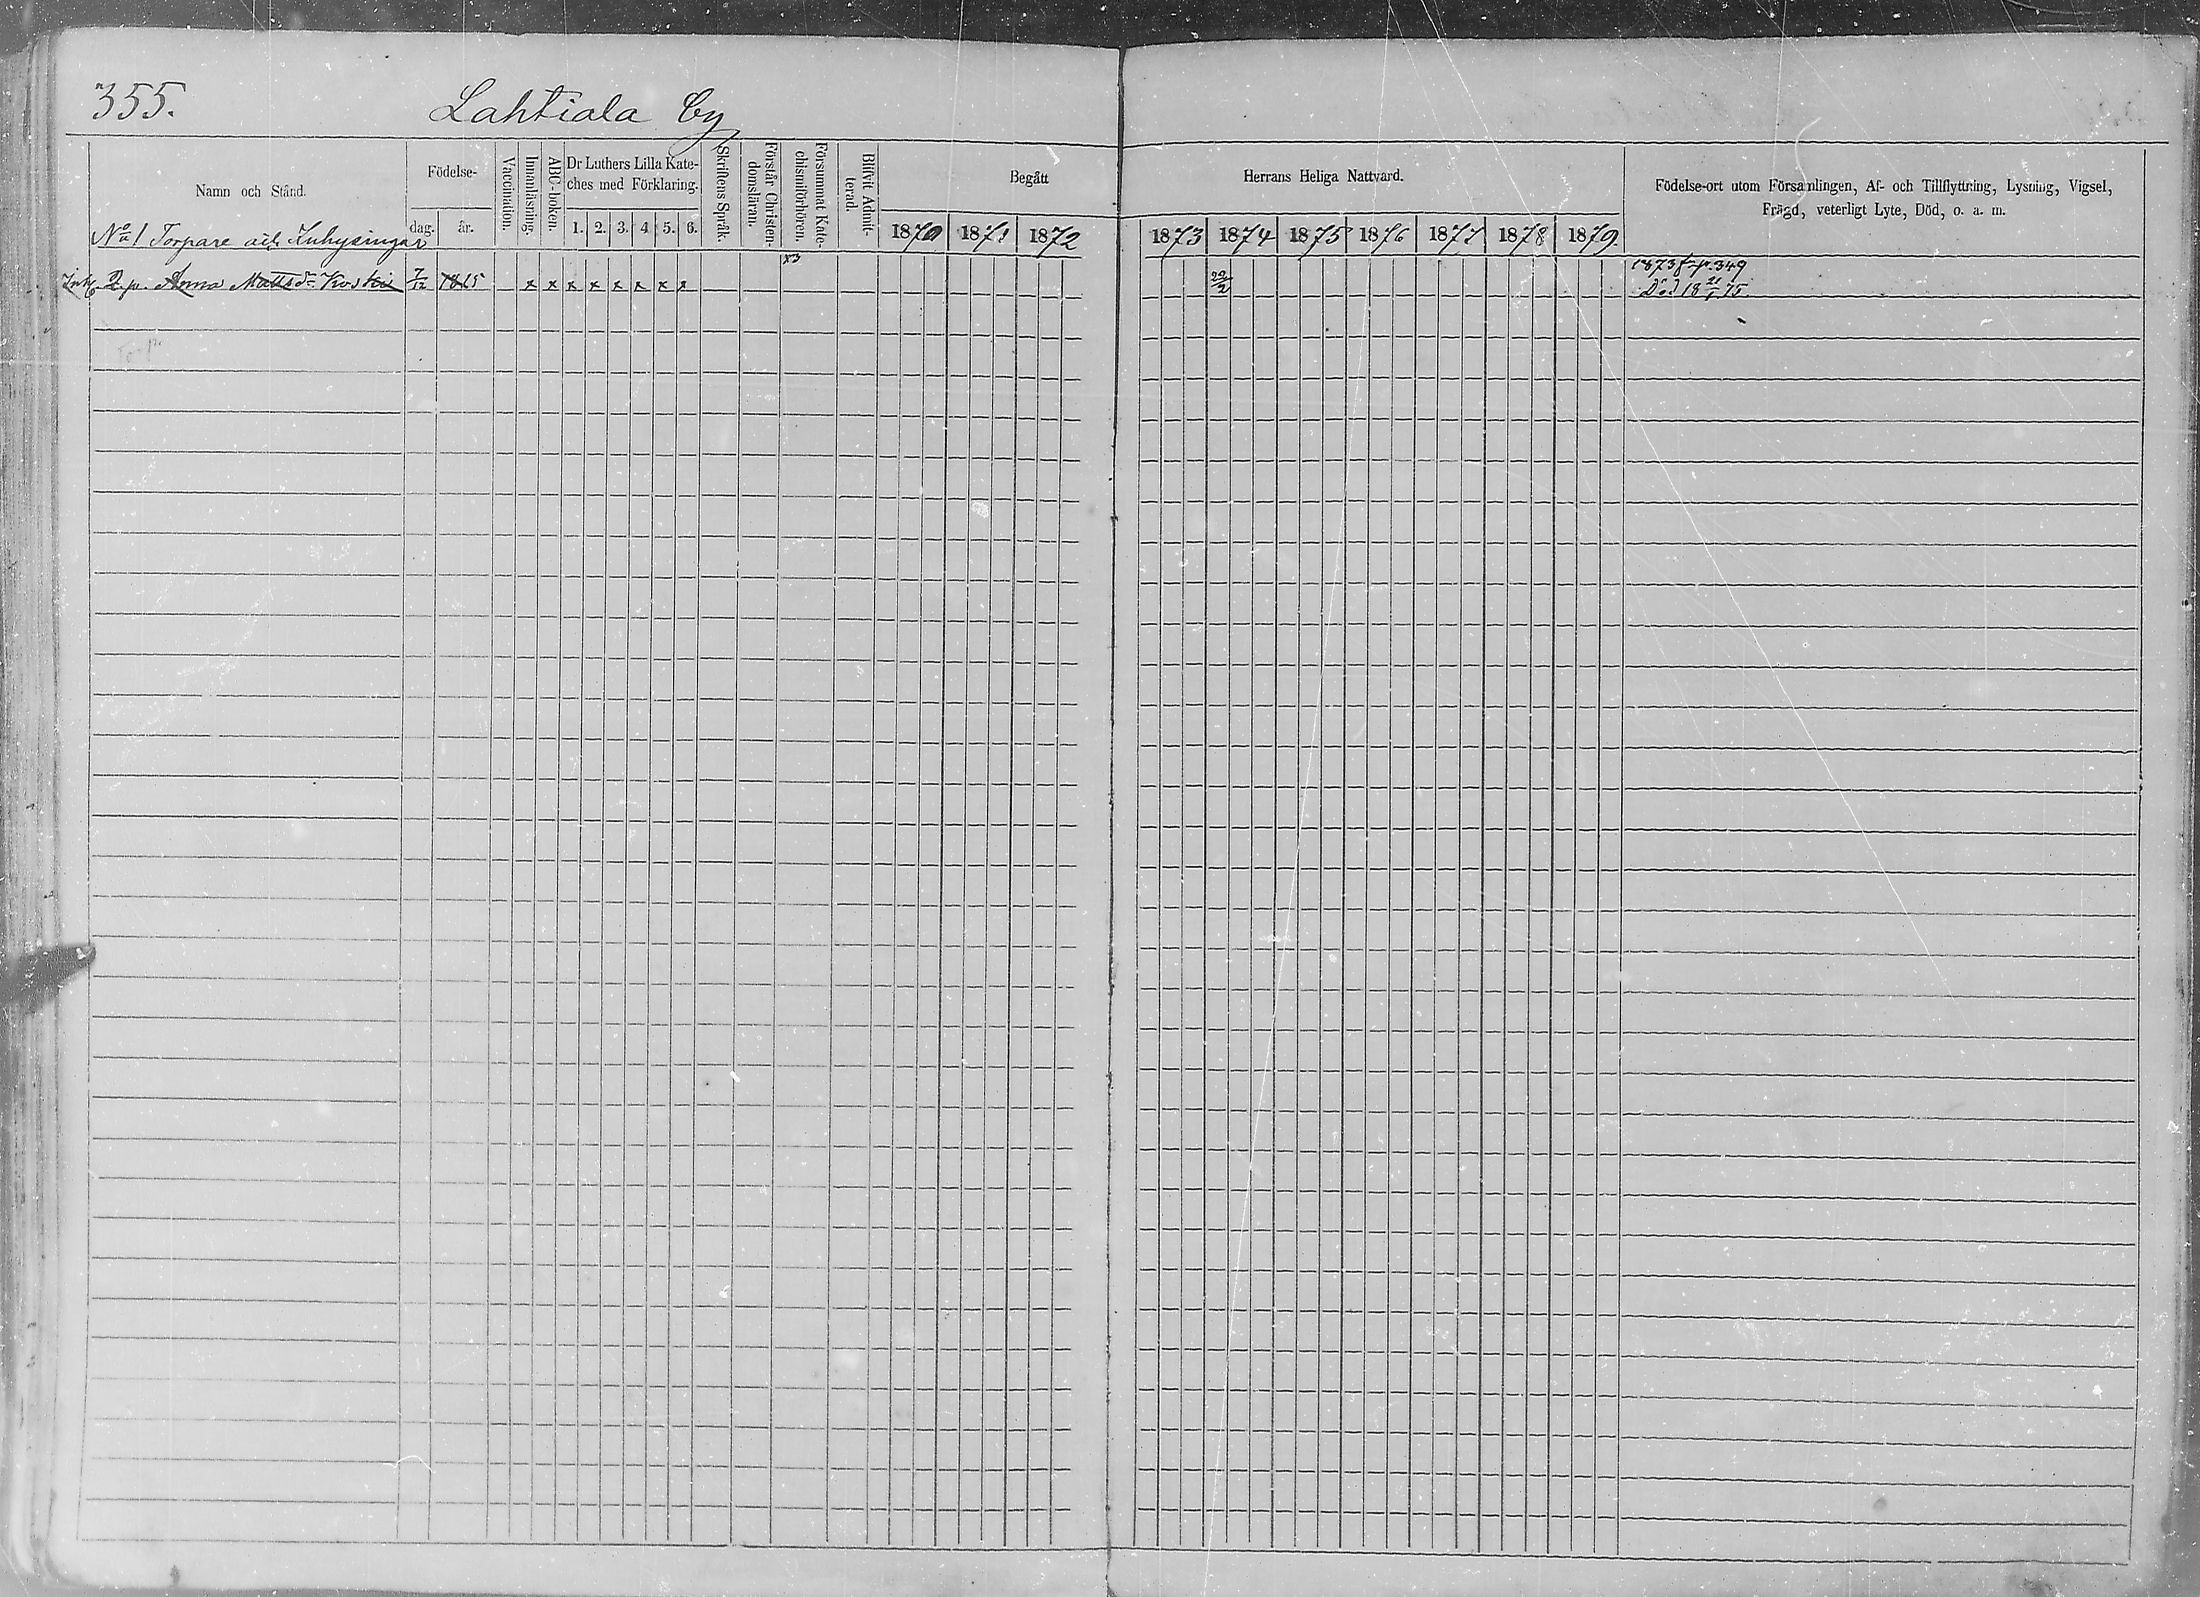 355. Lahtiala by
Namn och Stånd.
Födelse-
dag. år.
Vaccination.
Innanläsning.
ABC-boken.
Dr Luthers Lilla Kate-
ches med Förklaring.
1. 2. 3. 4 5. 6.
Skriftens Språk.
Förstår Christen-
domsläran.
Försummat Kate-
chismiförhören.
Blifvit Admit-
terad.
Begått Herrans Heliga Nattvard.
1870 1871 1872 1873 1874 1875 1876 1877 1878 1879.
Födelse-ort utom Församlingen, Af- och Tillflyttning, Lysning, Vigsel,
Frägd, veterligt Lyte, Död, o. a. m.
No 1 Torpare och Inhysingar
73 1873 f. p. 349
2. p. Anna Mattsdr Koski 7/12 1815 x x x x x x x x 22/2 Död 18 21/1 75.
Torp.